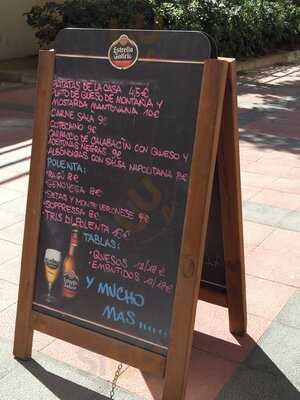 Estrella
Galicia
PATATAS DE LA CASA 4,5€
PLATO DE QUESO DE MONTAÑA Y
MOSTARDA MANTOVANA 10€
CARNE SALÀ 9€
COTECHINO 9€
CARPACCIO DE CALABACIN CON QUESO Y
ACEITUNAS NEGRAS 9€
ALBÓNDIGAS CON SALSA NAPOLITANA 8€
POLENTA:
-RAGÚ 8€
-GENOVESA 8€
-SETAS Y MONTE VERONESE 9€
-SOPRESSA 8€
-TRIS DI POLENTA 15€
TABLAS:
-QUESOS 12/18€
-EMBUTIDOS 12/18€
Y MUCHO
MAS......